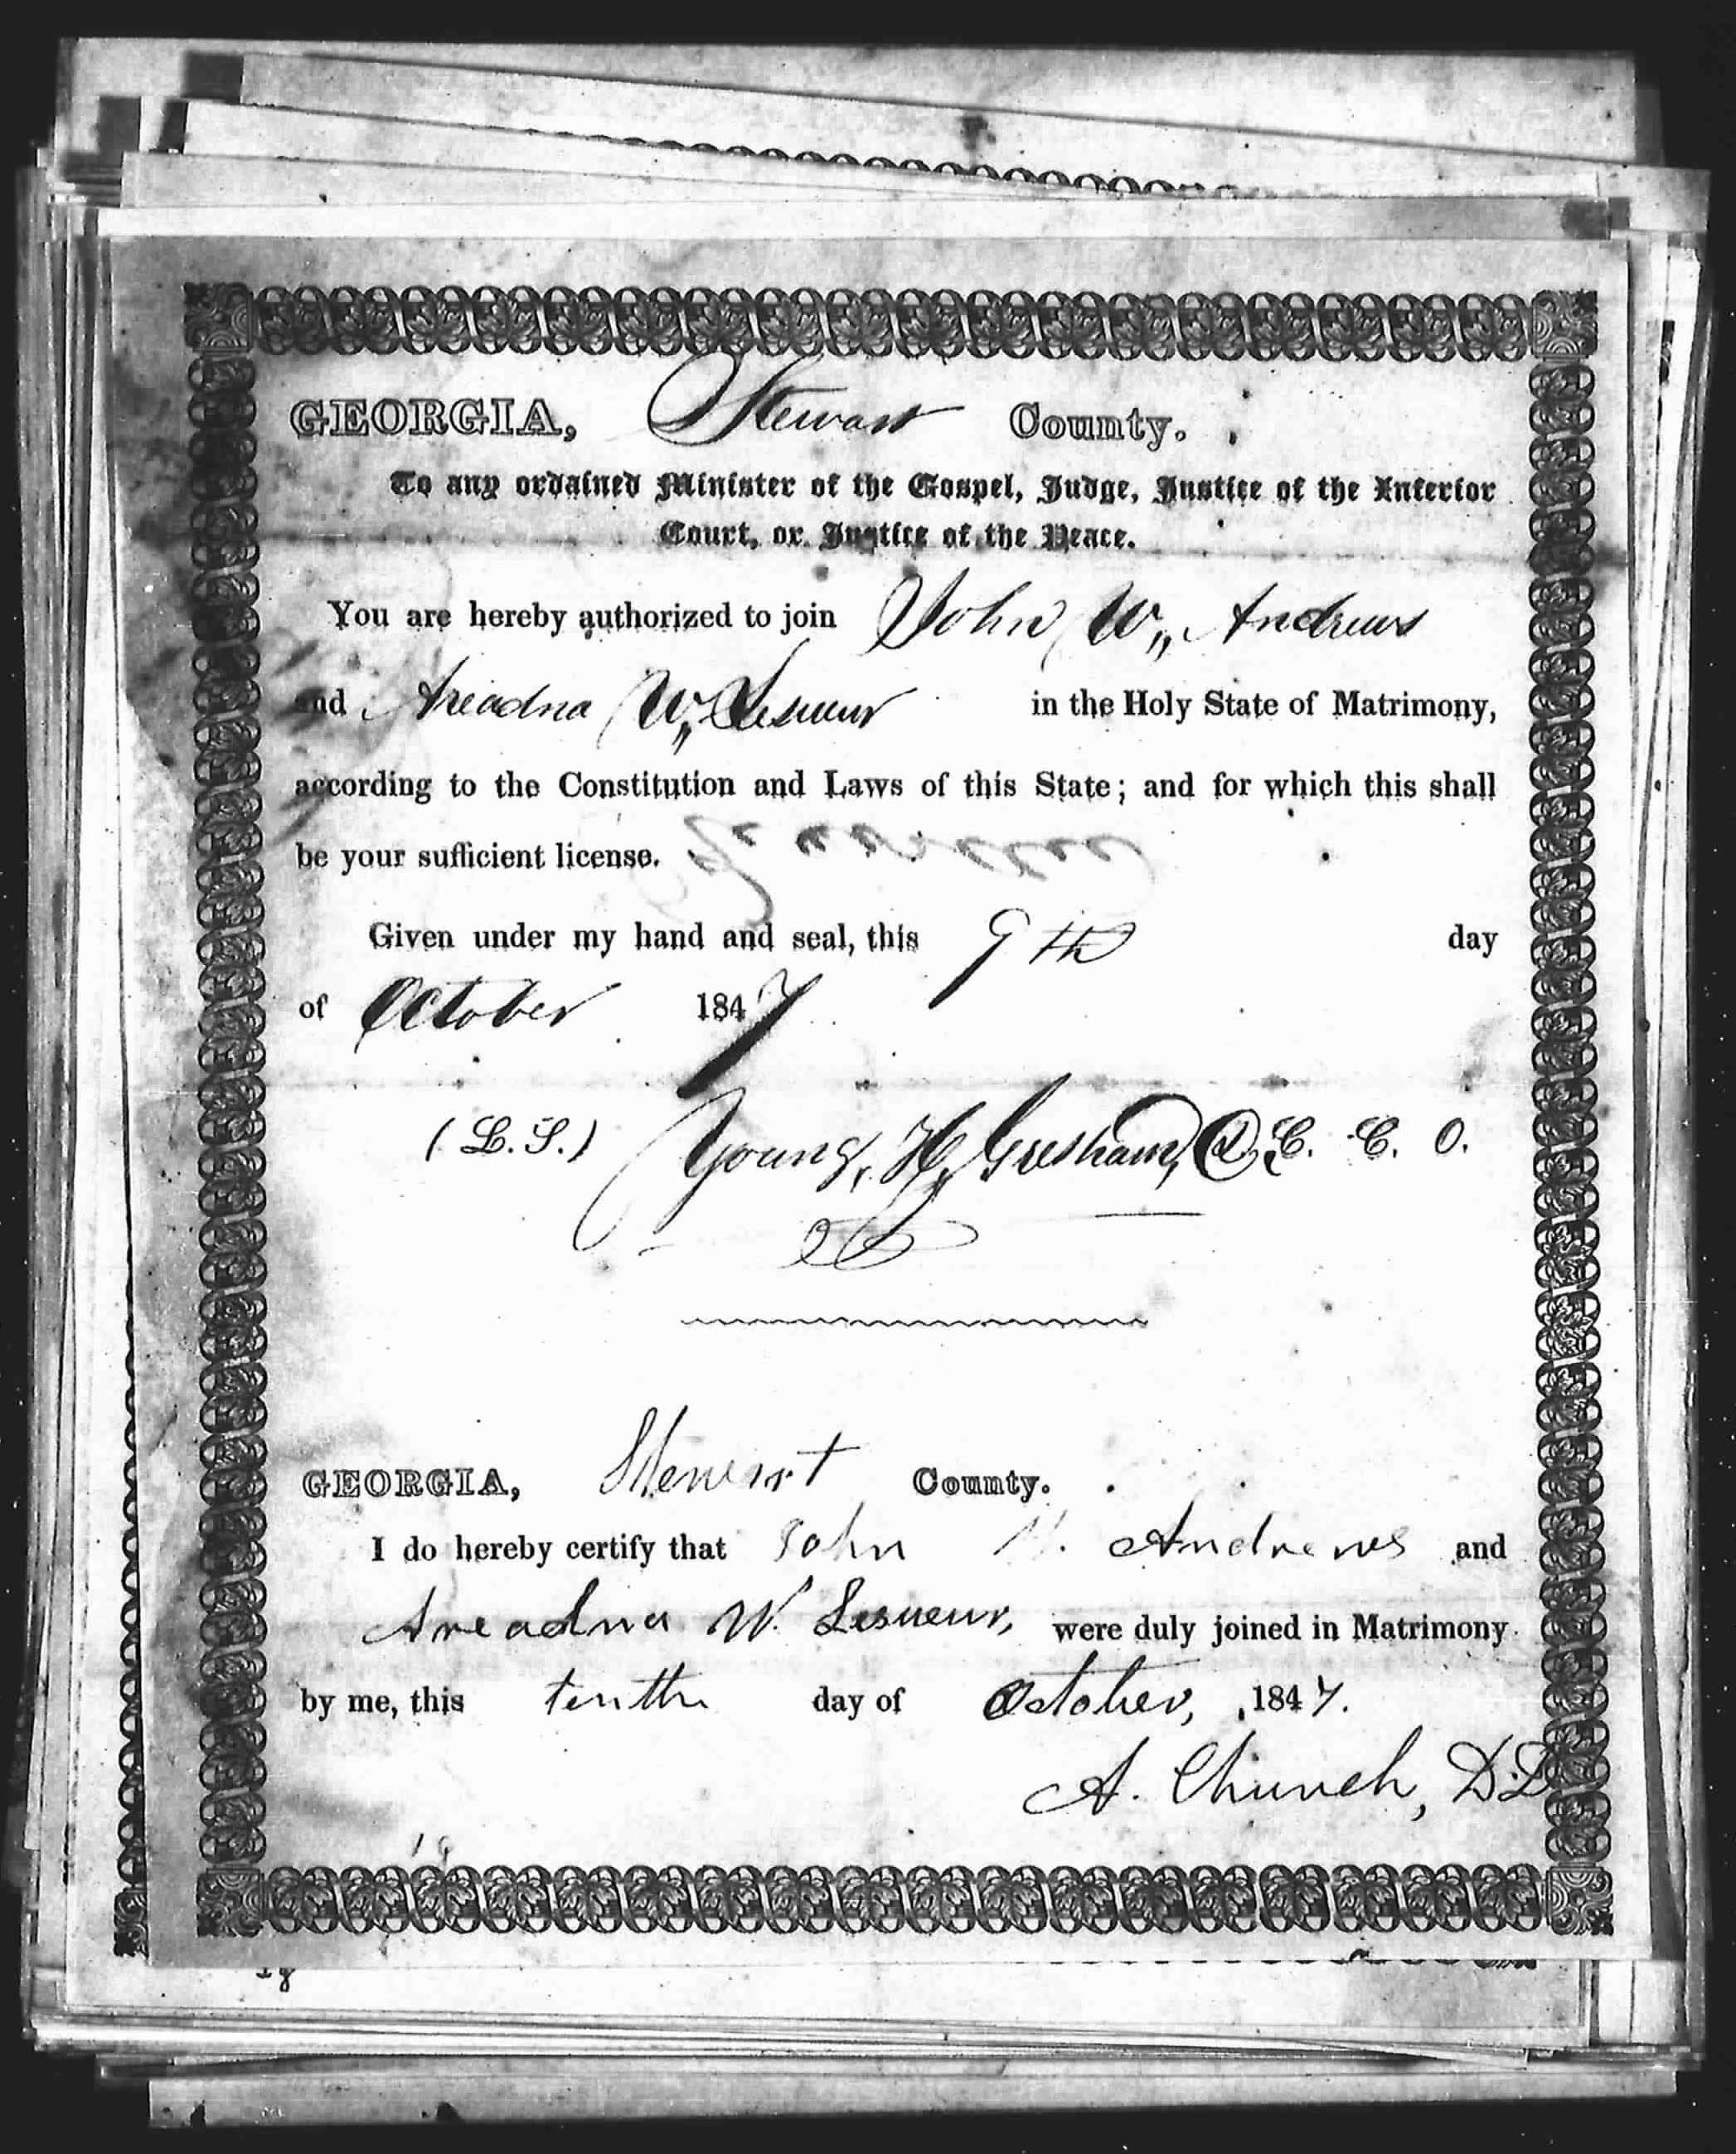 GEORGIA, Stewart County.
To any ordained Minister of the Gospel, Judge, Justice of the Inferior
Court, or Justice of the Peace.
You are hereby authorized to join John W,, Andrews
and Areadna W,, Lesueur in the Holy State of Matrimony,
according to the Constitution and Laws of this State; and for which this shall
be your sufficient license.
Given under my hand and seal, this 9th day
of October 1847
(L.S.) Young, H, Gresham, D, C. C. O.
GEORGIA, Stewart County.
I do hereby certify that John W. Andrews and
Areadna W. Lesueur, were duly joined in Matrimony
by me, this tenth day of October, 1847.
A. Church, D.D